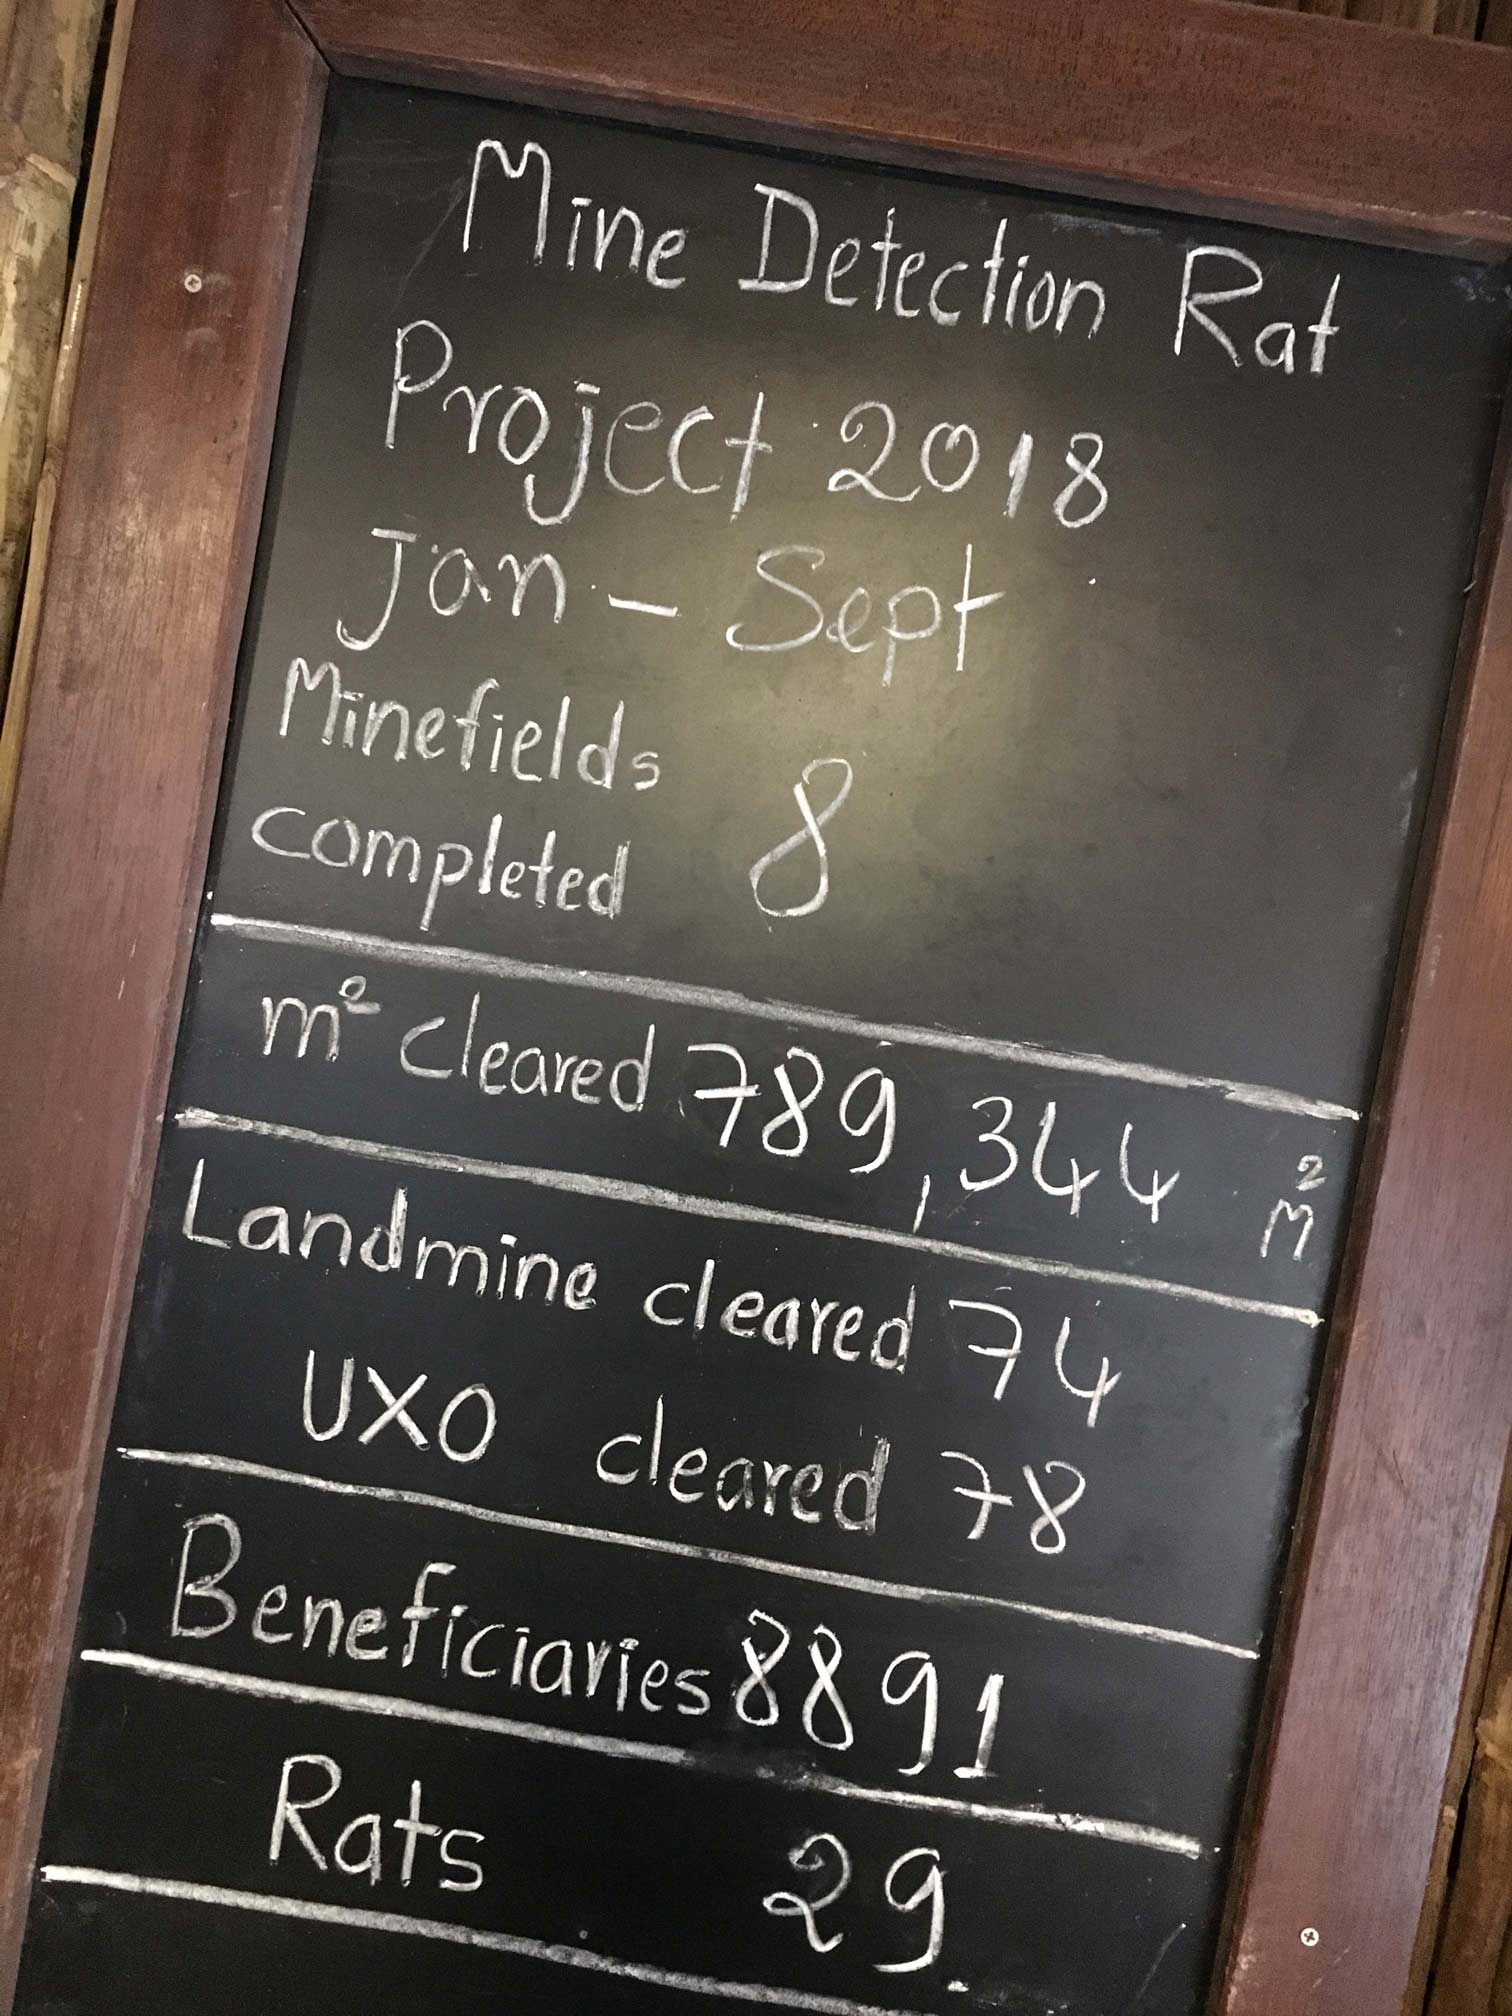 Mine Detection Rat
Project 2018
Jan - Sept
Minefields
completed 8
m² cleared 789,344 m²
Landmine cleared 74
UXO cleared 78
Beneficiaries 8891
Rats 29